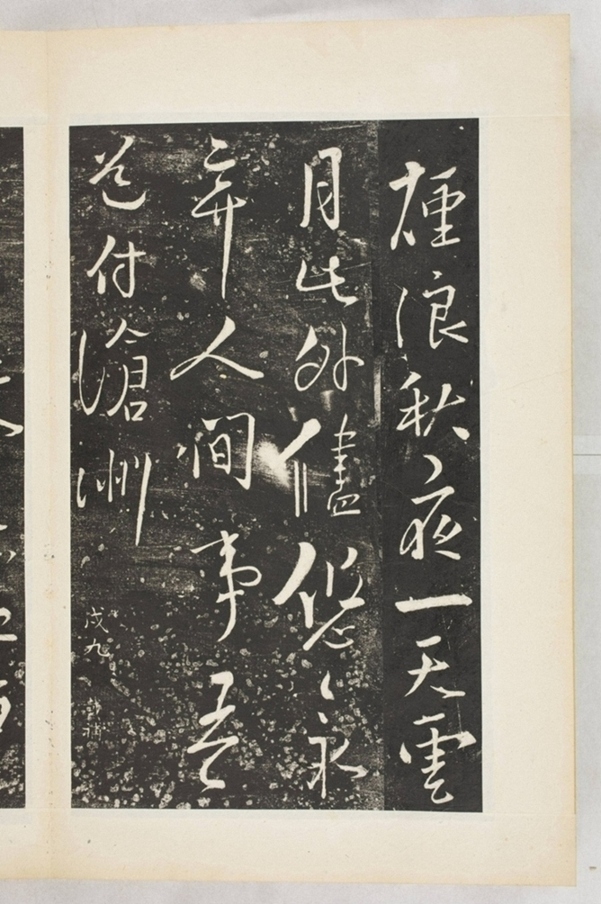 煙浪秋夜一天雲
月此外儘悠〻永
弃人間事吾
道付滄洲
戊九